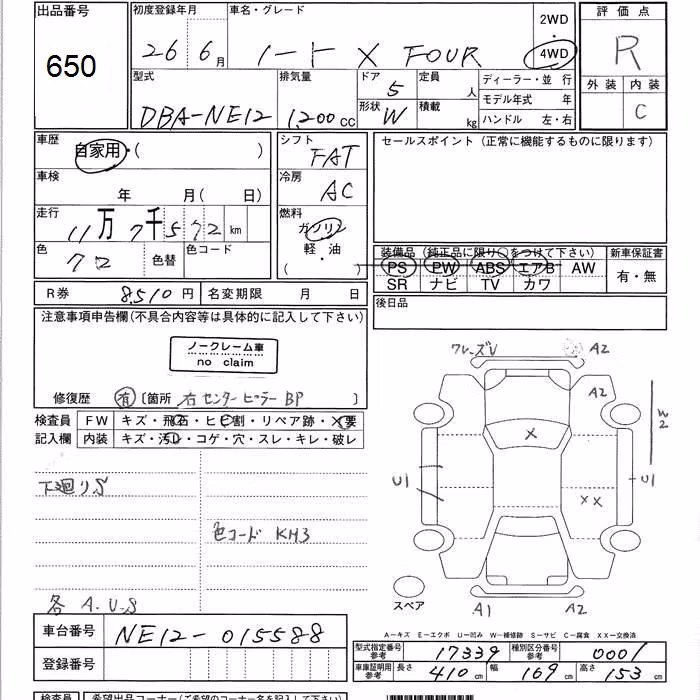 出品番号 初度登録年月 車名・グレード 2WD 評価点
650 26年6月 ノート X FOUR ・ 4WD R
型式 排気量 ドア 5 定員 人 ディーラー・並 行 外装 内装
DBA-NE12 1,200cc 形状 W 積載 kg モデル年式 年 C
ハンドル 左・右
車歴 自家用・( ) シフト FAT セールスポイント (正常に機能するものに限ります)
車検 年 月(日) 冷房 AC
走行 11万7千572km 燃料 ガソリン
色 クロ 色替 色コード 軽・油
( ・ )
装備品 (純正品に限り○をつけて下さい) 新車保証書
PS PW ABS エアB AW 有・無
SR ナビ TV カワ
R券 8,510円 名変期限 月 日 後日品
注意事項申告欄(不具合内容等は具体的に記入して下さい)
ノークレーム車
no claim
修復歴 有 〔箇所 右センターピラー BP 〕
検査員 FW キズ・飛石・ヒビ割・リペア跡・X要
記入欄 内装 キズ・汚レ・コゲ・穴・スレ・キレ・破レ
A2
A2
X
U1 XX U1
下廻りS
色コード KH3
各 A.U.S
スペア A1 A2
A―キズ E―エクボ U―凹み W―補修跡 S―サビ C―腐食 XX―交換済
車台番号 NE12-015588
型式指定番号 参考 17339 種別区分番号 参考 0001
登録番号
車庫証明用 参考 長さ 410cm 幅 169cm 高さ 153cm
検査員 希望出品コーナー(ご希望のコーナー名を記入下さい)